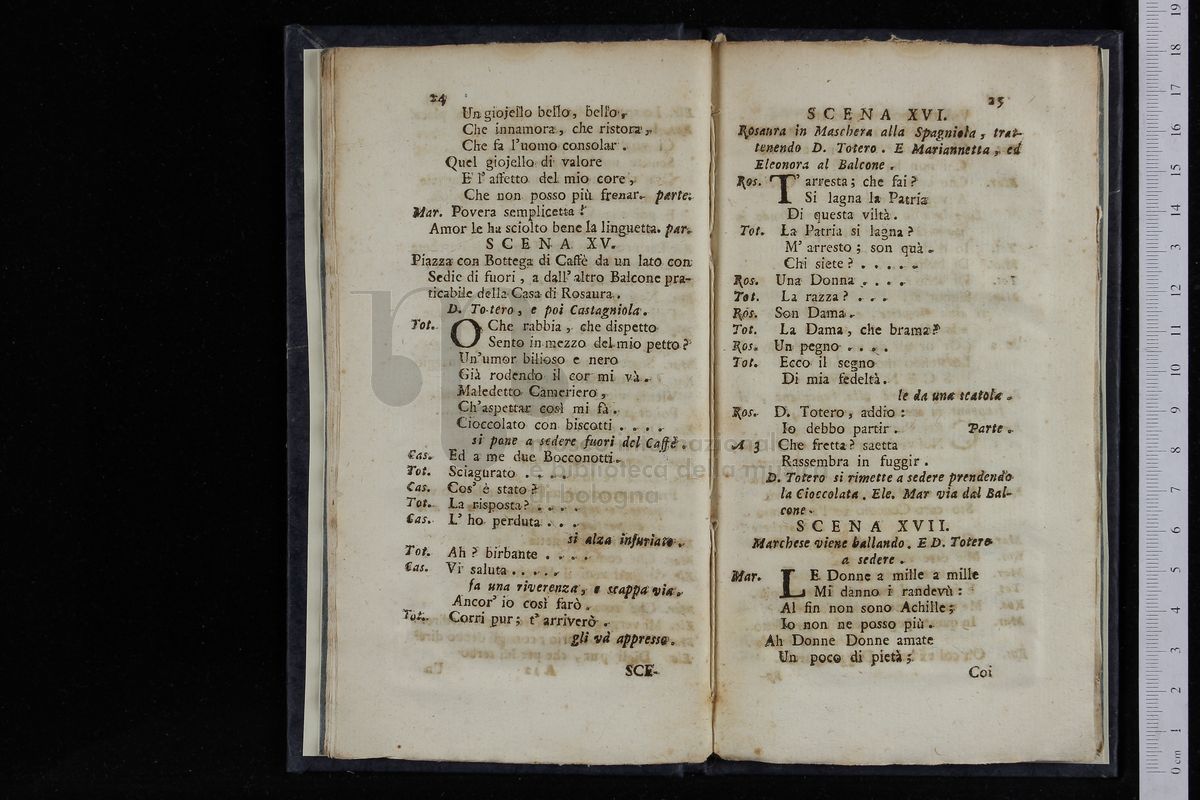 24
Un giojello bello, bello,
Che innamora, che ristora,
Che fa l'uomo consolar.
Quel giojello di valore
E l'affetto del mio core,
Che non posso più frenar. parte.
Mar. Povera semplicetta!
Amor le ha sciolto bene la linguetta. par.
SCENA XV.
Piazza con Bottega di Caffè da un lato con
Sedie di fuori, a dall'altro Balcone pra-
ticabile della Casa di Rosaura.
D. Totero, e poi Castagniola.
Tot. O Che rabbia, che dispetto
Sento in mezzo del mio petto?
Un'umor bilioso e nero
Già rodendo il cor mi và.
Maledetto Cameriero,
Ch'aspettar così mi fà.
Cioccolato con biscotti . . . .
si pone a sedere fuori del Caffè.
Cas. Ed a me due Bocconotti.
Tot. Sciagurato . . . .
Cas. Cos' è stato?
Tot. La risposta? . . . .
Cas. L' ho perduta . . .
si alza infuriato.
Tot. Ah? birbante . . . .
Cas. Vi saluta . . . . .
fa una riverenza, e scappa via.
Ancor' io così farò.
Tot. Corri pur; t' arriverò.
gli và appresso.
SCE-
25
SCENA XVI.
Rosaura in Maschera alla Spagniola, trat-
tenendo D. Totero. E Mariannetta, ed
Eleonora al Balcone.
Ros. T' arresta; che fai?
Si lagna la Patria
Di questa viltà.
Tot. La Patria si lagna?
M' arresto; son quà.
Chi siete? . . . . .
Ros. Una Donna . . . .
Tot. La razza? . . .
Ros. Son Dama.
Tot. La Dama, che brama?
Ros. Un pegno . . . .
Tot. Ecco il segno
Di mia fedeltà.
le da una scatola.
Ros. D. Totero, addio:
Io debbo partir. Parte.
A 3 Che fretta? saetta
Rassembra in fuggir.
D. Totero si rimette a sedere prendendo
la Cioccolata. Ele. Mar via dal Bal-
cone.
SCENA XVII.
Marchese viene ballando. E D. Totero
a sedere.
Mar. LE Donne a mille a mille
Mi danno i randevù:
Al fin non sono Achille;
Io non ne posso più.
Ah Donne Donne amate
Un poco di pietà;
Coi